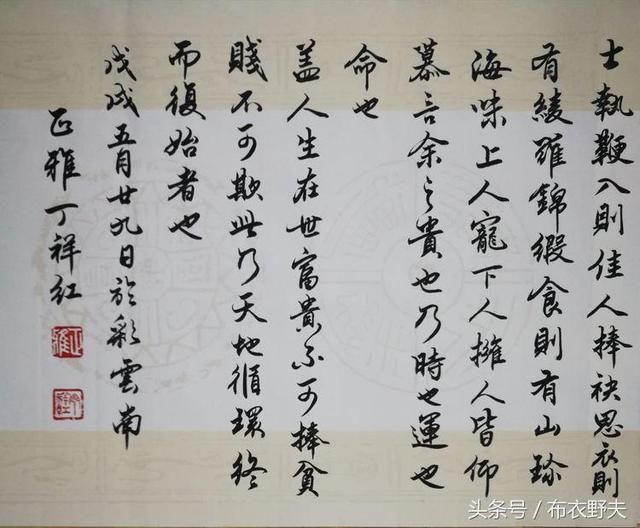 士執鞭入則佳人捧袂思衣則
有綾羅錦緞食則有山珍
海味上人寵下人擁人皆仰
慕言余之貴也乃時也運也
命也
盖人生在世富貴不可捧貧
賤不可欺此乃天地循環終
而復始者也
戊戌五月廿九日於彩雲南
正雅丁祥红
正雅
头条号/布衣野夫